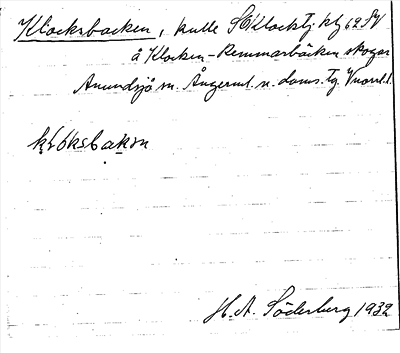 Klocksbacken, kulle SO Klocktj. kbl 62 SV
å Klocken-Remmarbäcken skogar
Anundsjö sn. Ångerml. n. doms. tg. Vnorrl. l.
klóksbakɱ
H. A. Söderberg 1932